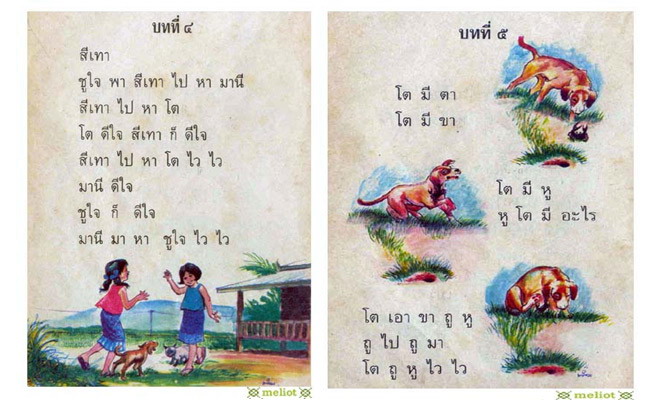 บทที่ ๔
สีเทา
ชูใจ พา สีเทา ไป หา มานี
สีเทา ไป หา โต
โต ดีใจ สีเทา ก็ ดีใจ
สีเทา ไป หา โต ไว ไว
มานี ดีใจ
ชูใจ ก็ ดีใจ
มานี มา หา ชูใจ ไว ไว
meliot
บทที่ ๕
โต มี ตา
โต มี ขา
โต มี หู
หู โต มี อะไร
โต เอา ขา ถู หู
ถู ไป ถู มา
โต ถู หู ไว ไว
meliot